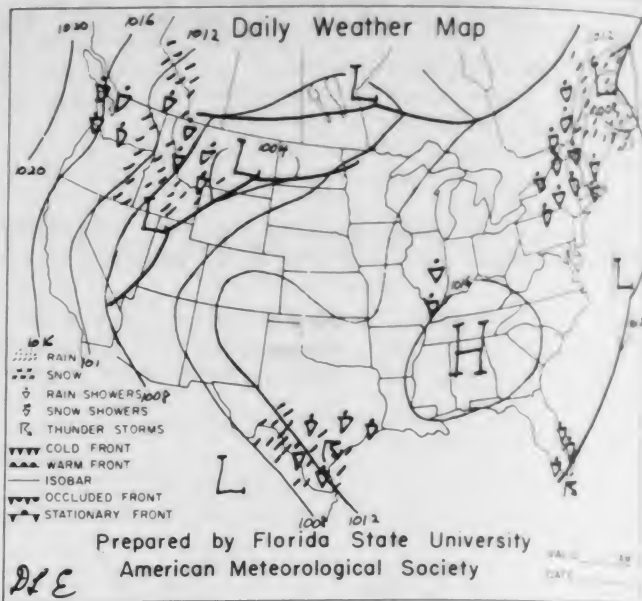 Daily Weather Map
1020
1016
1012
1012
1008
1004
L
L
L
L
L
L
1020
1016
H
1016
101
1008
RAIN
SNOW
RAIN SHOWERS
SNOW SHOWERS
THUNDER STORMS
COLD FRONT
WARM FRONT
ISOBAR
OCCLUDED FRONT
STATIONARY FRONT
1008
1012
Prepared by Florida State University
American Meteorological Society
DLE
DATE